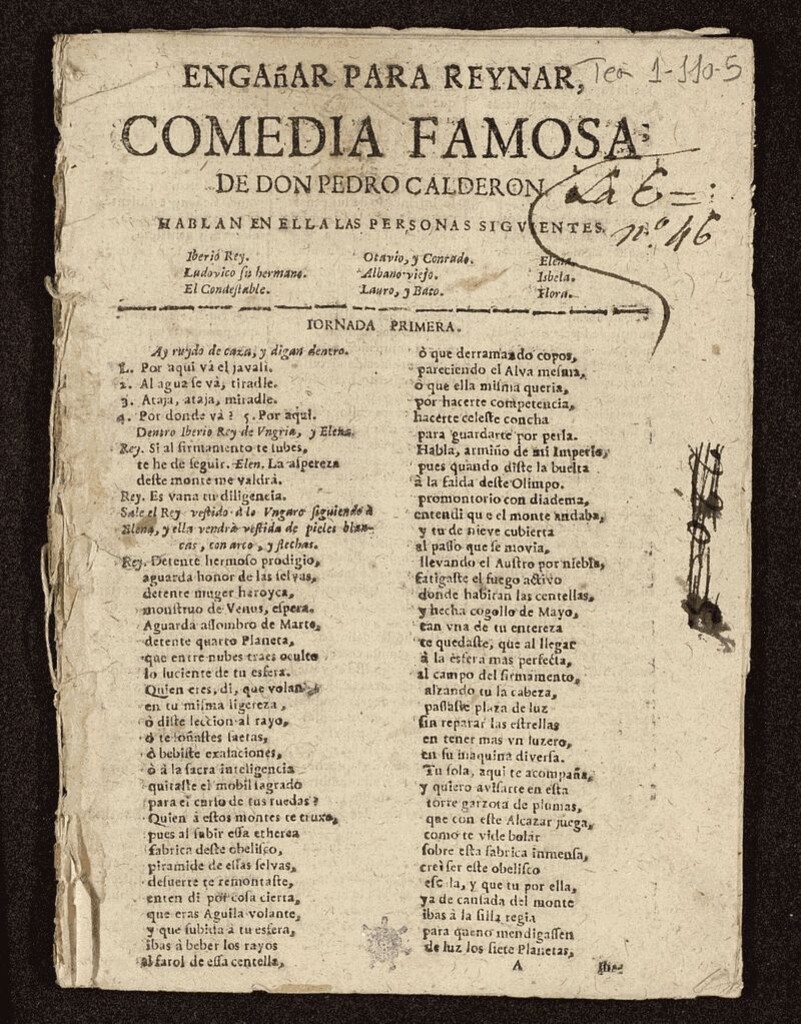 ENGAñAR PARA REYNAR,
Tea 1-110-5
COMEDIA FAMOSA:
DE DON PEDRO CALDERON
La E=:
nº 46
HABLAN EN ELLA LAS PERSONAS SIGVIENTES.
Iberio Rey.
Ludovico su hermano.
El Condestable.
Otavio, y Conrado.
Albano viejo.
Lauro, y Bato.
Elena.
Isbela.
Flora.
IORNADA PRIMERA.
Ay ruydo de caza, y digan dentro.
1. Por aqui vá el javali.
2. Al agua se vá, tiradle.
3. Ataja, ataja, miradle.
4. Por donde vá? 5. Por aqui.
Dentro Iberio Rey de Vngria, y Elena.
Rey. Si al firmamento te subes,
te he de seguir. Elen. La aspereza
deste monte me valdrá.
Rey. Es vana tu diligencia.
Sale el Rey vestido à lo Vngaro siguiendo à
Elena, y ella vendrà vestida de pieles blan-
cas, con arco, y flechas.
Rey. Detente hermoso prodigio,
aguarda honor de las selvas,
detente muger heroyca,
monstruo de Venus, espera.
Aguarda assombro de Marte,
detente quarto Planeta,
que entre nubes traes oculto
lo luciente de tu esfera.
Quien eres, di, que volando
en tu misma ligereza,
ò diste leccion al rayo,
ò te soñastes saetas,
ò bebiste exalaciones,
ò à la sacra inteligencia
quitaste el mobil sagrado
para el curso de tus ruedas?
Quien à estos montes te truxo,
pues al subir essa etherea
fabrica deste obelisco,
piramide de essas selvas,
desuerte te remontaste,
enten di por cosa cierta,
que eras Aguila volante,
y que subida à tu esfera,
ibas à beber los rayos
al farol de essa centella,
ò que derramando copos,
pareciendo el Alva mesma,
ò que ella misma queria,
por hacerte competencia,
hacerte celeste concha
para guardarte por perla.
Habla, armiño de mi Imperio,
pues quando diste la buelta
à la falda deste Olimpo.
promontorio con diadema,
entendi que el monte andaba,
y tu de nieve cubierta
al passo que se movia,
llevando el Austro por niebla,
fatigaste el fuego activo
donde habitan las centellas,
y hecha cogollo de Mayo,
tan vna de tu entereza
te quedaste, que al llegar
à la esfera mas perfecta,
al campo del firmamento,
alzando tu la cabeza,
passaste plaza de luz
sin reparar las estrellas
en tener mas vn luzero,
en su maquina diversa.
Tu sola, aqui te acompaña,
y quiero avisarte en esta
torre garzota de plumas,
que con este Alcazar juega,
como te vide bolar
sobre esta fabrica inmensa,
crei ser este obelisco
esc la, y que tu por ella,
ya de cansada del monte
ibas à la silla regia
para que no mendigassen
de luz los siete Planetas,
A